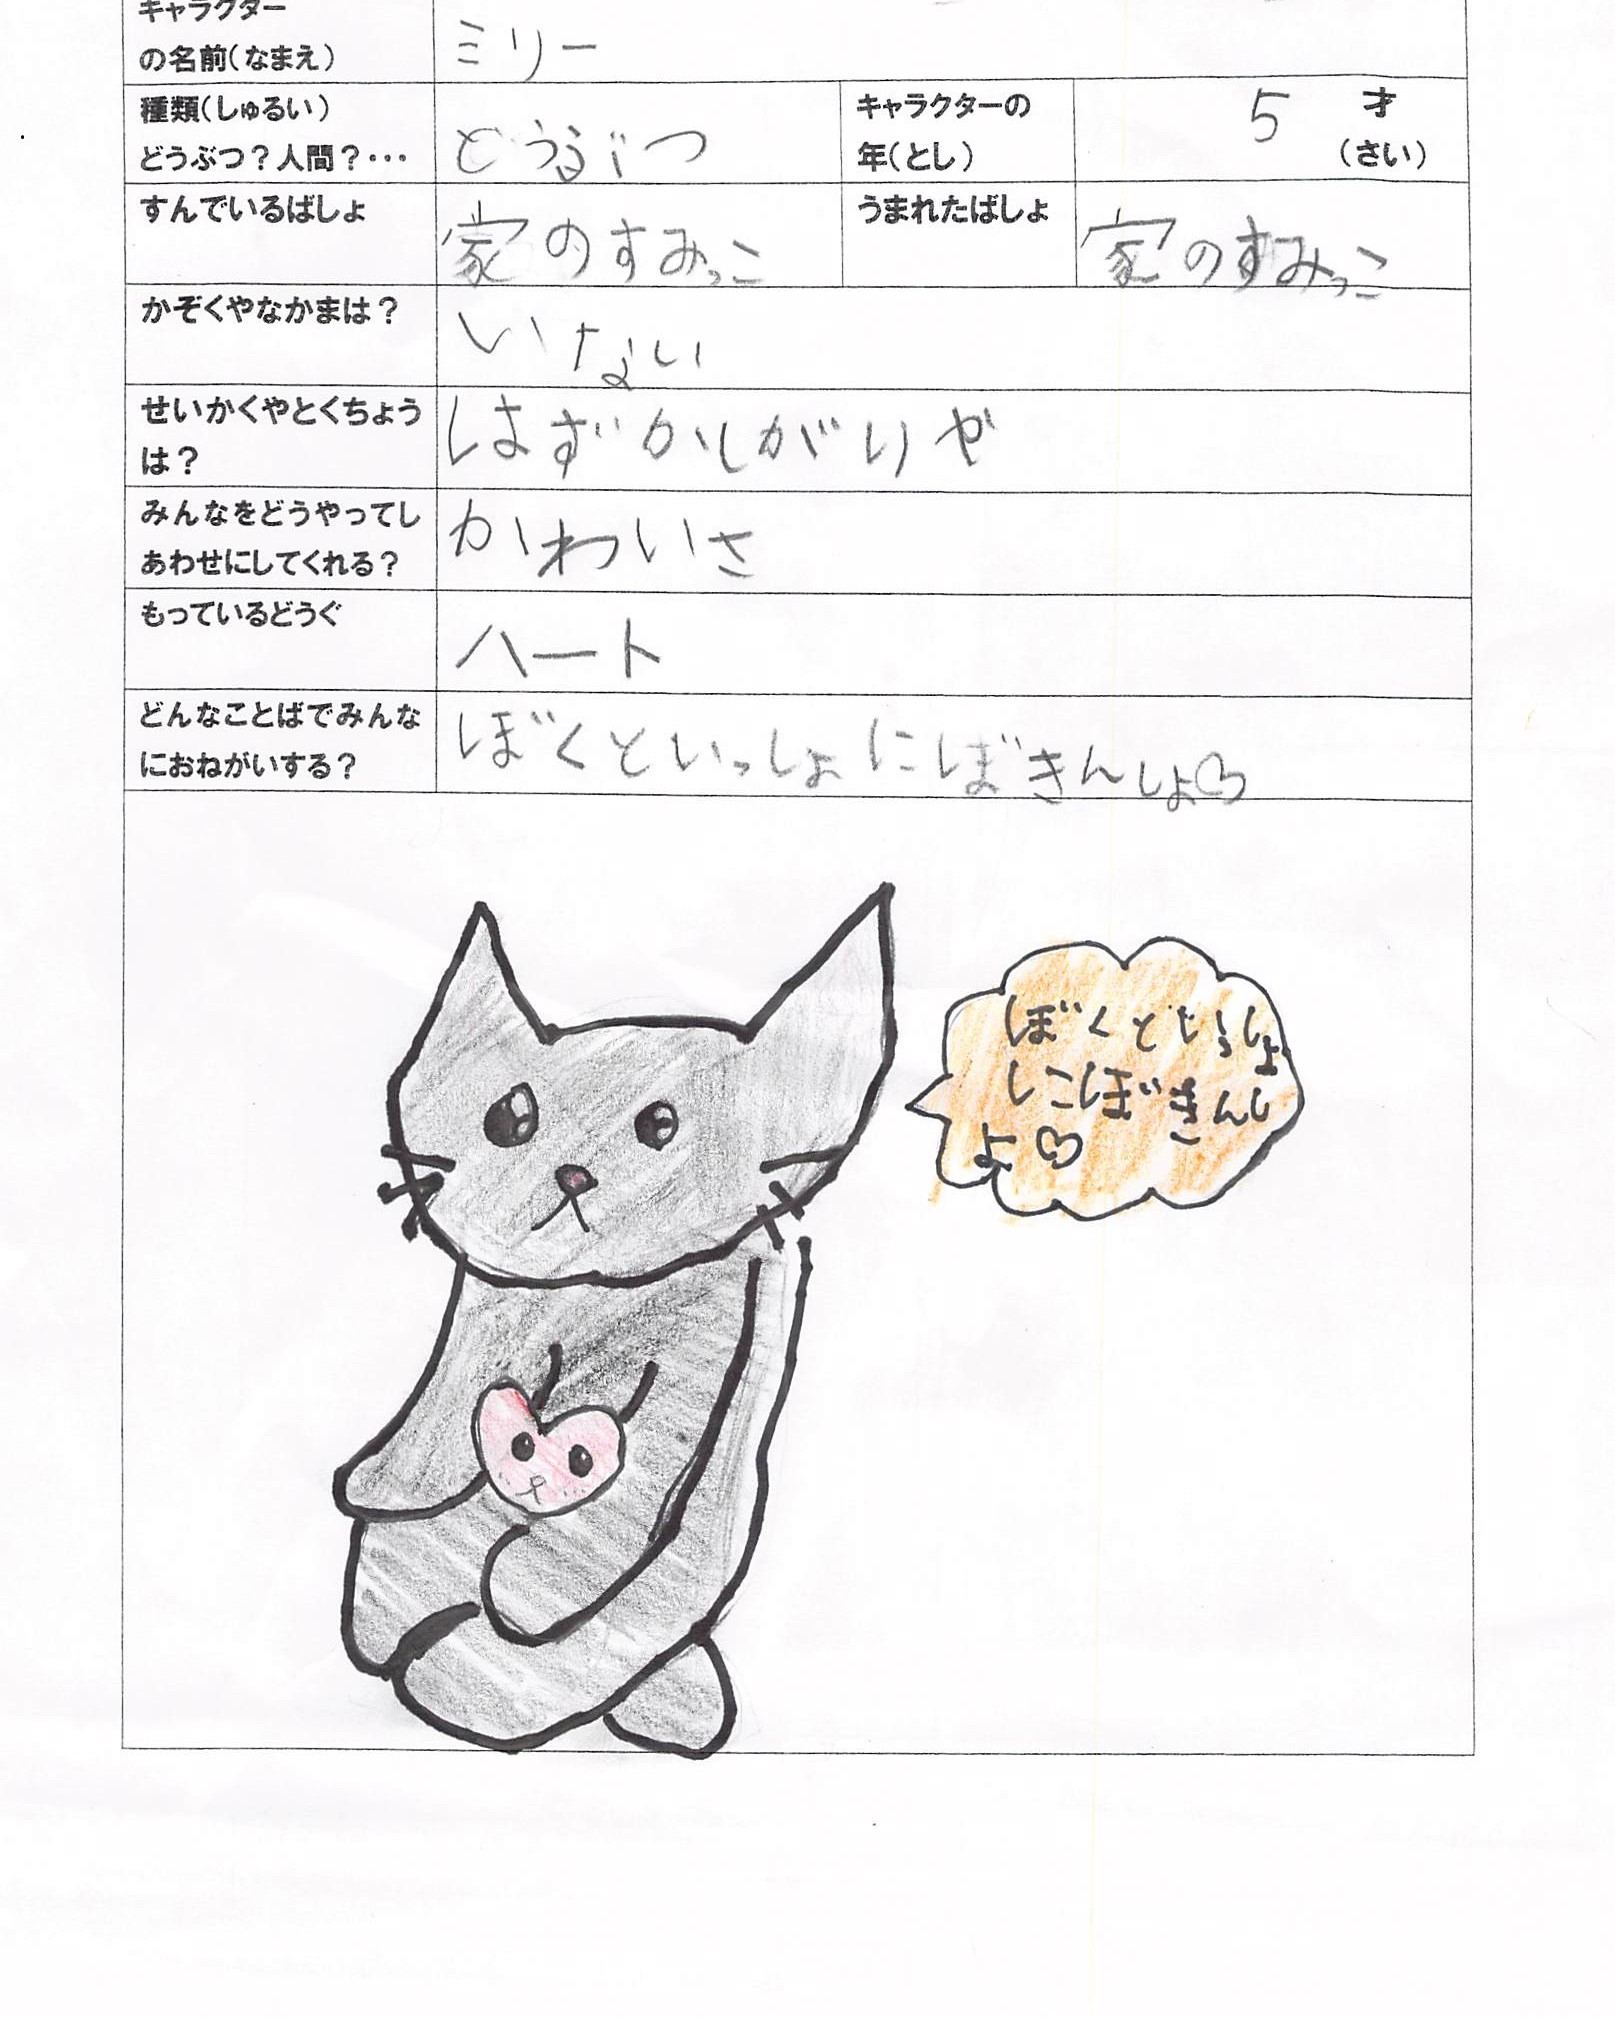 キャラクター
の名前(なまえ)
ミリー
種類(しゅるい)
どうぶつ?人間?・・・
どうぶつ
キャラクターの
年(とし)
5 才
(さい)
すんでいるばしょ
家のすみっこ
うまれたばしょ
家のすみっこ
かぞくやなかまは?
いない
せいかくやとくちょう
は?
はずかしがりや
みんなをどうやってし
あわせにしてくれる?
かわいさ
もっているどうぐ
ハート
どんなことばでみんな
におねがいする?
ぼくといっしょにぼきんしょ♡
ぼくといっしょ
にぼきんし
ょ♡